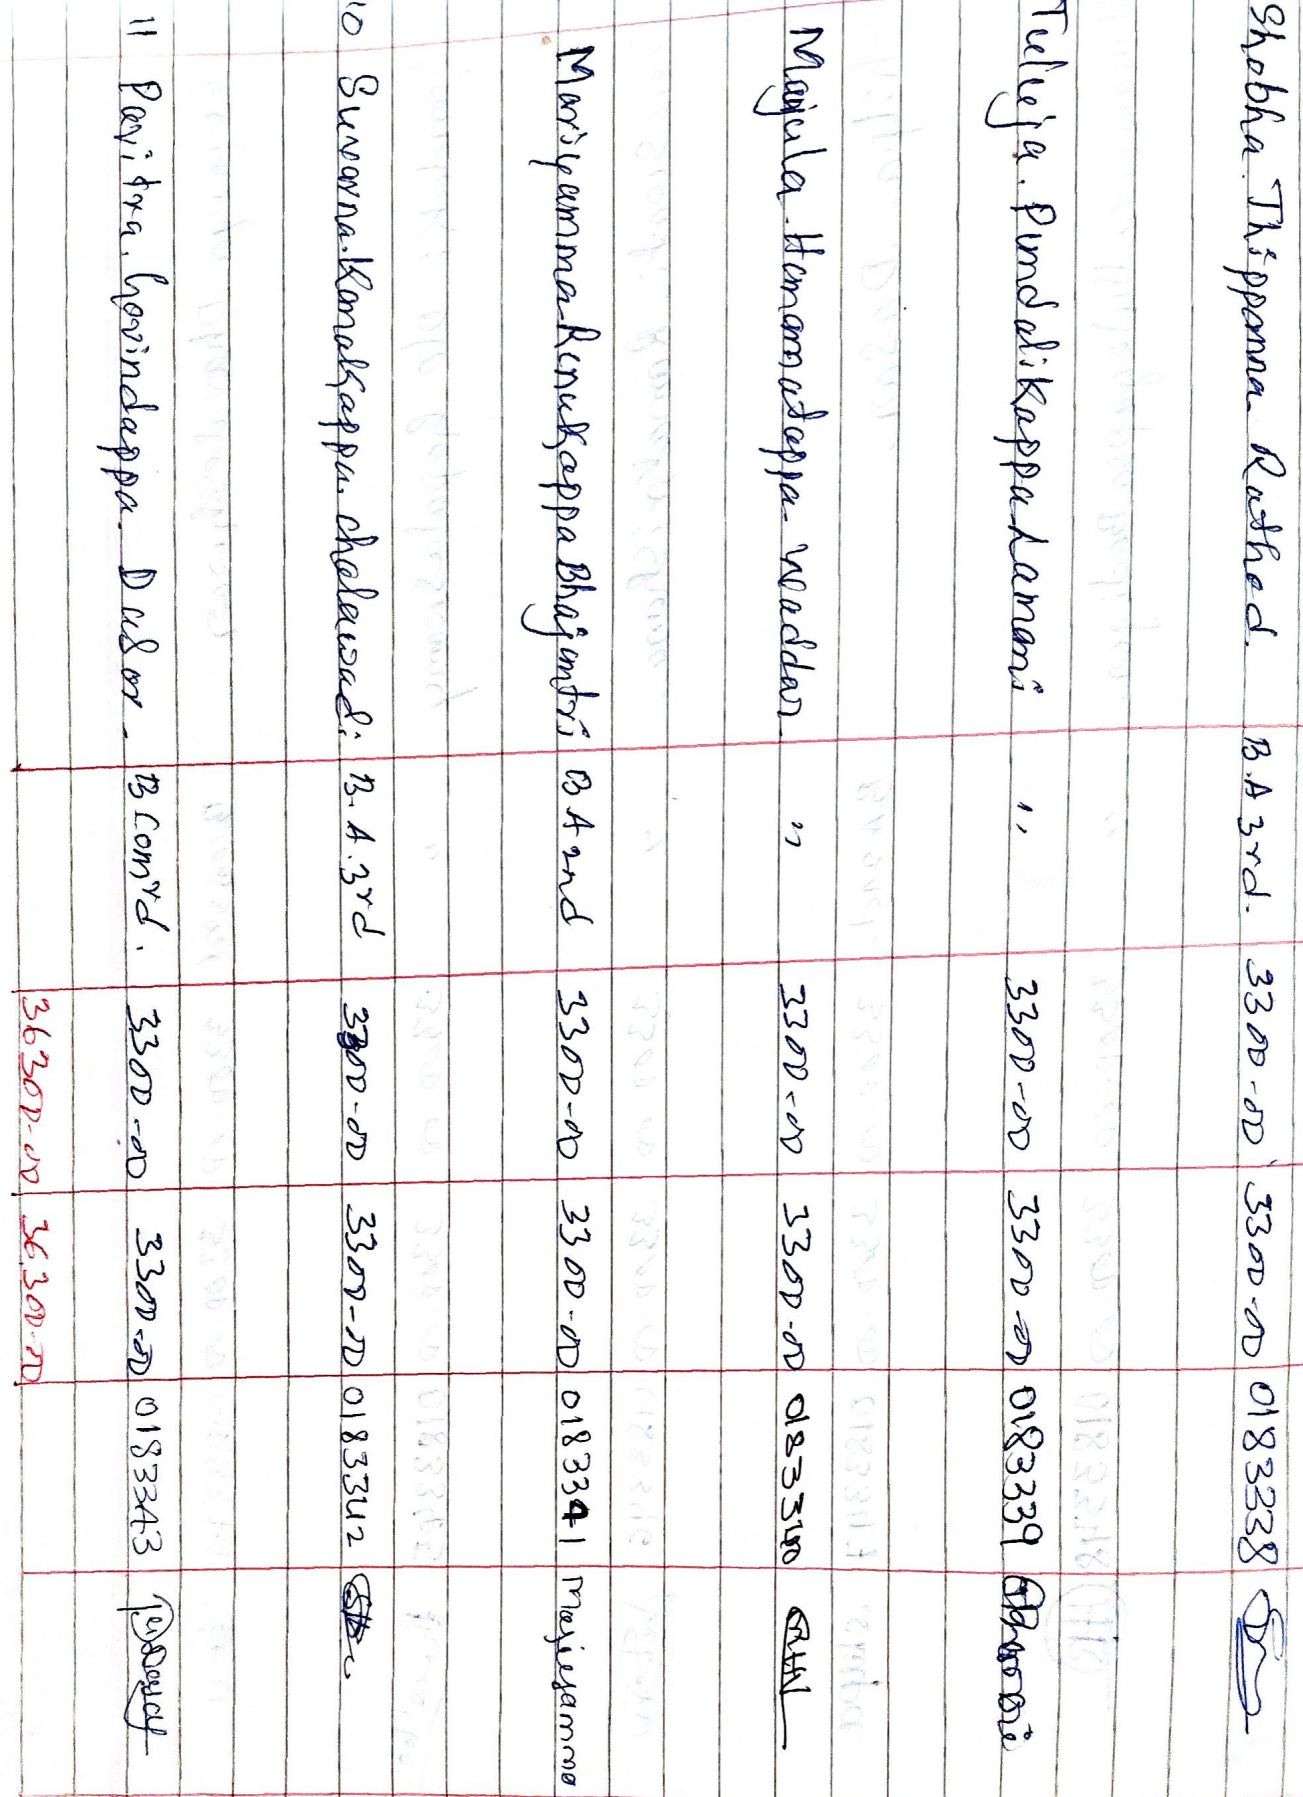 Shobha. Thippanna Rathod. B.A 3rd. 3300-00 3300-00 0183338
Tuljeja. Pundalikappa Lamani ,, 3300-00 3300-00 0183339
Manjula Hanamatappa Waddar ,, 3300-00 3300-00 0183340
Mariyamma Renukappa Bhajantri B A 2nd 3300-00 3300-00 0183341 Mariyamma
10 Suvarna. Kanakappa. chalawadi B.A.3rd 3300-00 3300-00 0183342
11 Pavitra. Govindappa. Dasar. B Com 3300-00 3300-00 0183343
36300-00 36300-00